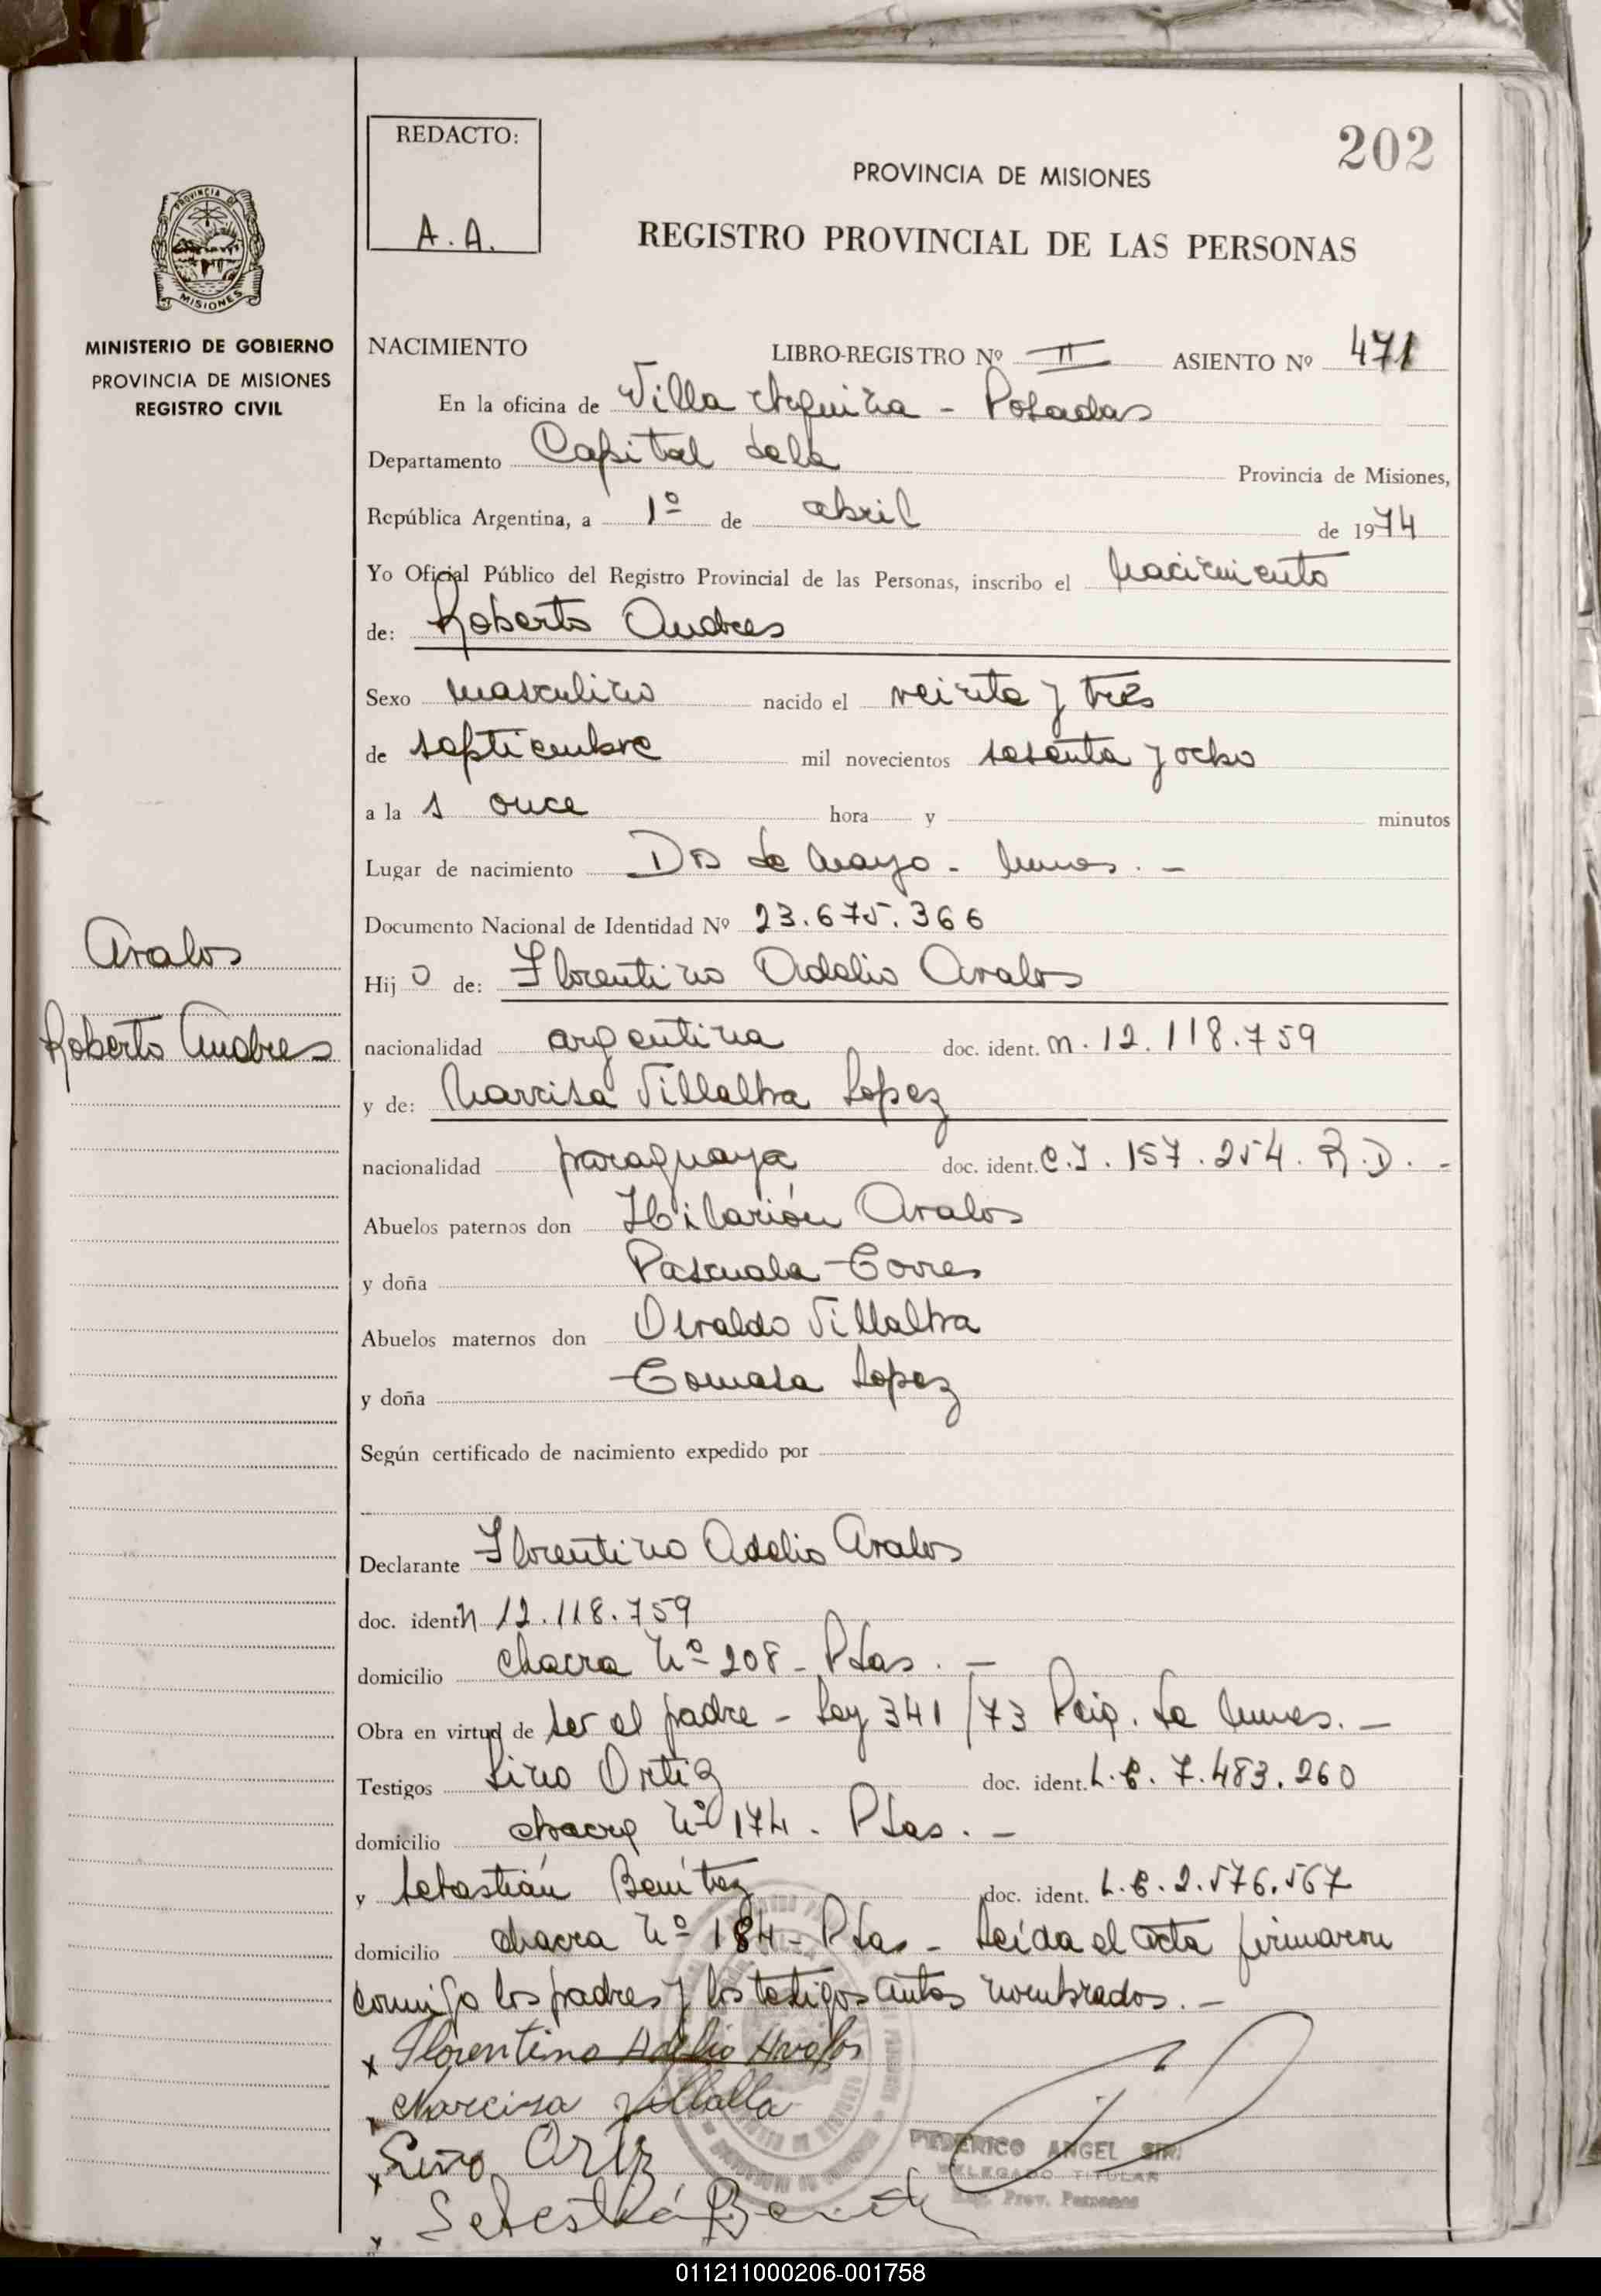 202
REDACTO:
A.A.
PROVINCIA DE MISIONES
REGISTRO PROVINCIAL DE LAS PERSONAS
PROVINCIA DE
MISIONES
MINISTERIO DE GOBIERNO
PROVINCIA DE MISIONES
REGISTRO CIVIL
NACIMIENTO LIBRO-REGISTRO Nº II ASIENTO Nº 471
En la oficina de Villa Urquiza - Posadas
Departamento Capital de la Provincia de Misiones,
República Argentina, a 1º de abril de 1974
Yo Oficial Público del Registro Provincial de las Personas, inscribo el Nacimiento
de: Roberto Andres
Sexo masculino nacido el veinte y tres
de septiembre mil novecientos sesenta y ocho
a la s once hora y minutos
Lugar de nacimiento Dos de Mayo -
Documento Nacional de Identidad Nº 23.675.366
Avalos
Roberto Andres
Hij o de: Florentino Adelio Avalos
nacionalidad argentina doc. ident. M. 12.118.759
y de: Narcisa Villalba Lopez
nacionalidad paraguaya doc. ident. C.I. 157.254. R.D. -
Abuelos paternos don Hilarión Avalos
y doña Pascuala Torres
Abuelos maternos don Osvaldo Villalba
y doña Tomasa Lopez
Según certificado de nacimiento expedido por
Declarante Florentino Adelio Avalos
doc. ident M 12.118.759
domicilio chacra Nº 208 - Pdas. -
Obra en virtud de ser el padre - Ley 341/73 de
Testigos Lino Ortiz doc. ident. L.E. 7.483.260
domicilio chacra Nº 174 - Pdas. -
y Sebastián Benítez doc. ident. L.E. 2.576.567
domicilio chacra Nº 184 - Pdas - Leída el acta firmaron
conmigo los padres y los testigos antes nombrados. -
x Florentino Adelio Avalos
x Narcisa Villalba
x Lino Ortiz
x Sebastián Benit
FEDERICO ANGEL SIRI
DELEGADO TITULAR
Reg. Prov. Personas
011211000206-001758